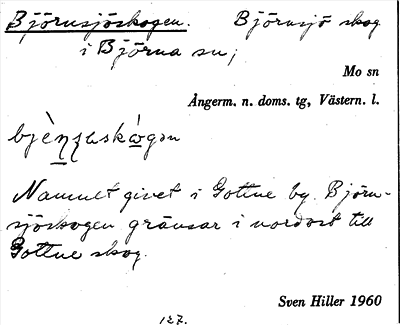 Björnsjöskogen. Björnsjö skog
i Björna sn;
Mo sn
Ångerm. n. doms. tg, Västern. l.
Namnet givet i Gottne by. Björn-
sjöskogen gränsar i nordost till
Gottne skog.
Sven Hiller 1960
127.